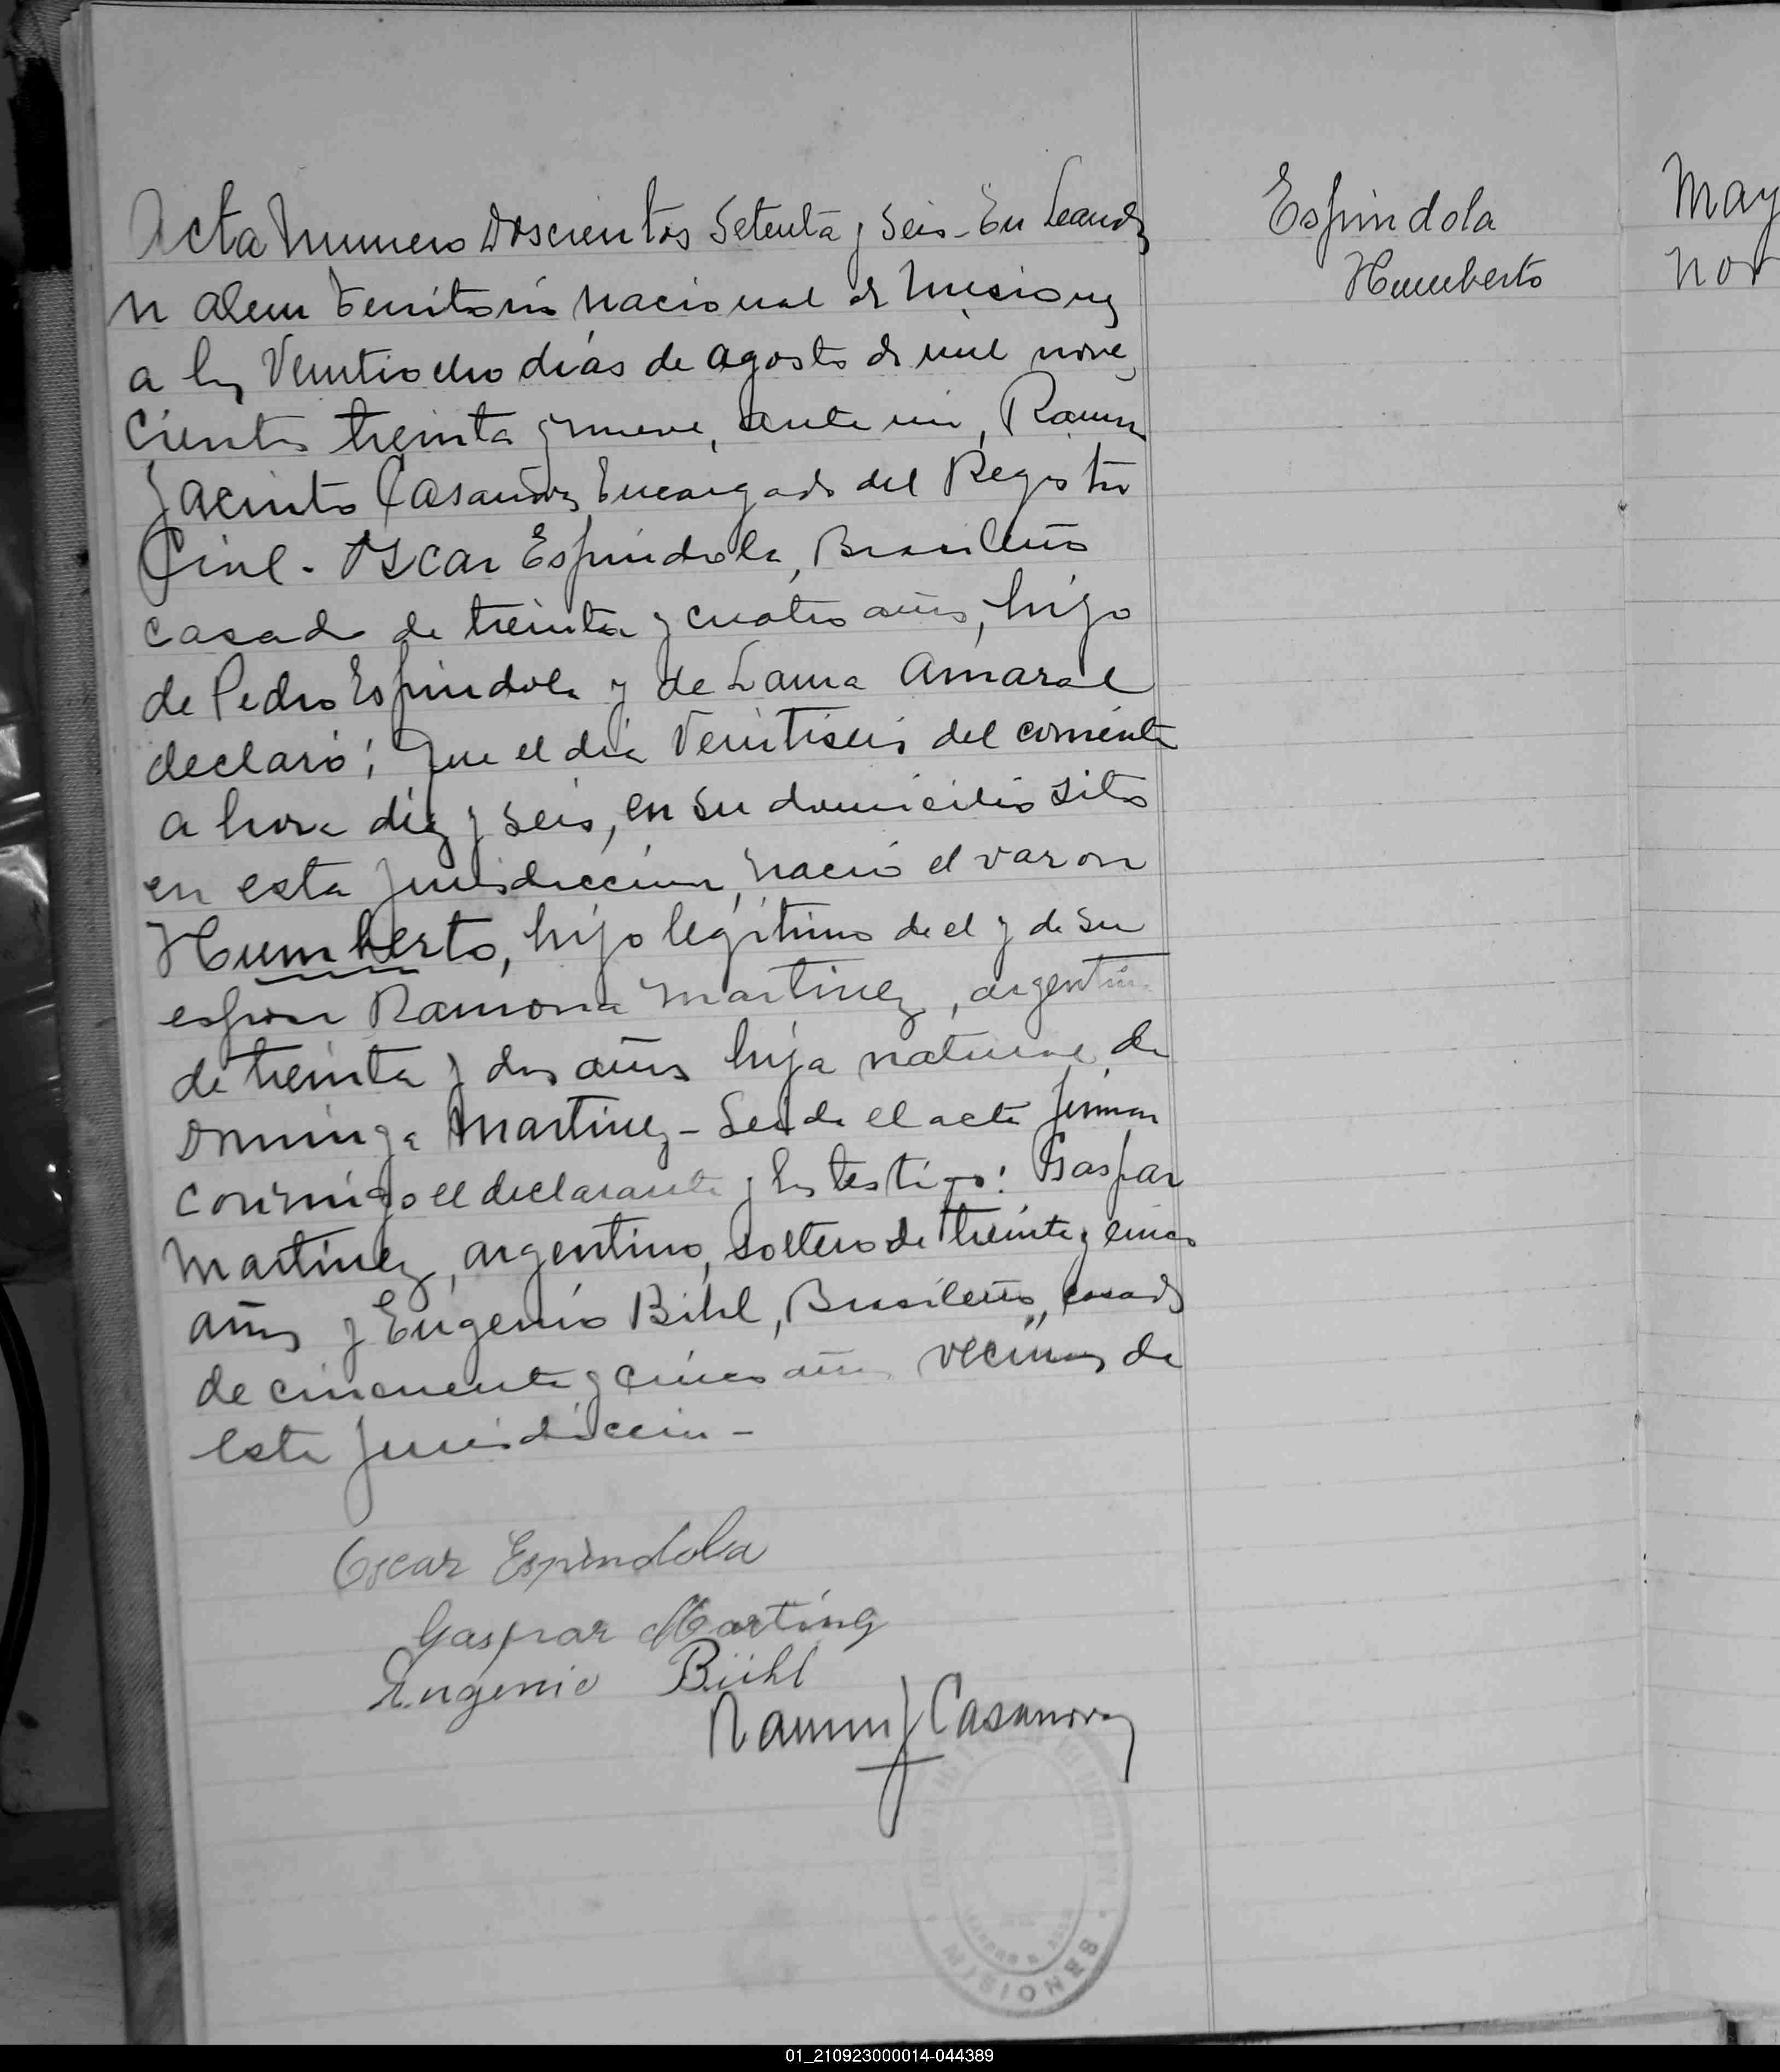 Acta Numero Doscientos Setenta y Seis - En Leandro
N Alem Territorio Nacional de Misiones
a los Veintiocho dias de Agosto de mil nove,
cientos treinta y nueve, ante mi, Ramon
Jacinto Casanova, Encargado del Registro
Civil - Oscar Espindola, Brasileño
casado de treinta y cuatro años, hijo
de Pedro Espindola y de Laura Amaral
declaró; Que el dia Veintiseis del corriente
a hora diez y seis, en su domicilio sito
en esta jurisdiccion, nació el varon
Humberto, hijo legitimo de el y de su
esposa Ramona Martinez, argentina
de treinta y dos años hija natural de
Dominga Martinez - Leida el acta firman
conmigo el declarante y los testigos: Gaspar
Martinez, argentino, soltero de treinta y cinco
años y Eugenio Bihl, Brasileño, casado
de cincuenta y cinco años vecinos de
esta jurisdiccion -
Oscar Espindola
Gaspar Martinez
Eugenio Bühl
Ramon J Casanova
MISIONES
Espindola
Humberto
May
Nor
01_210923000014-044389